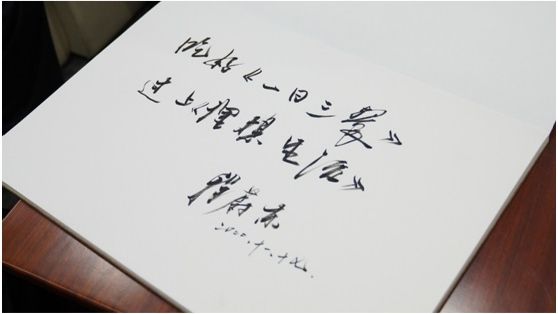 吃好《一日三餐》
过上《生活》
2020.十一.十七.